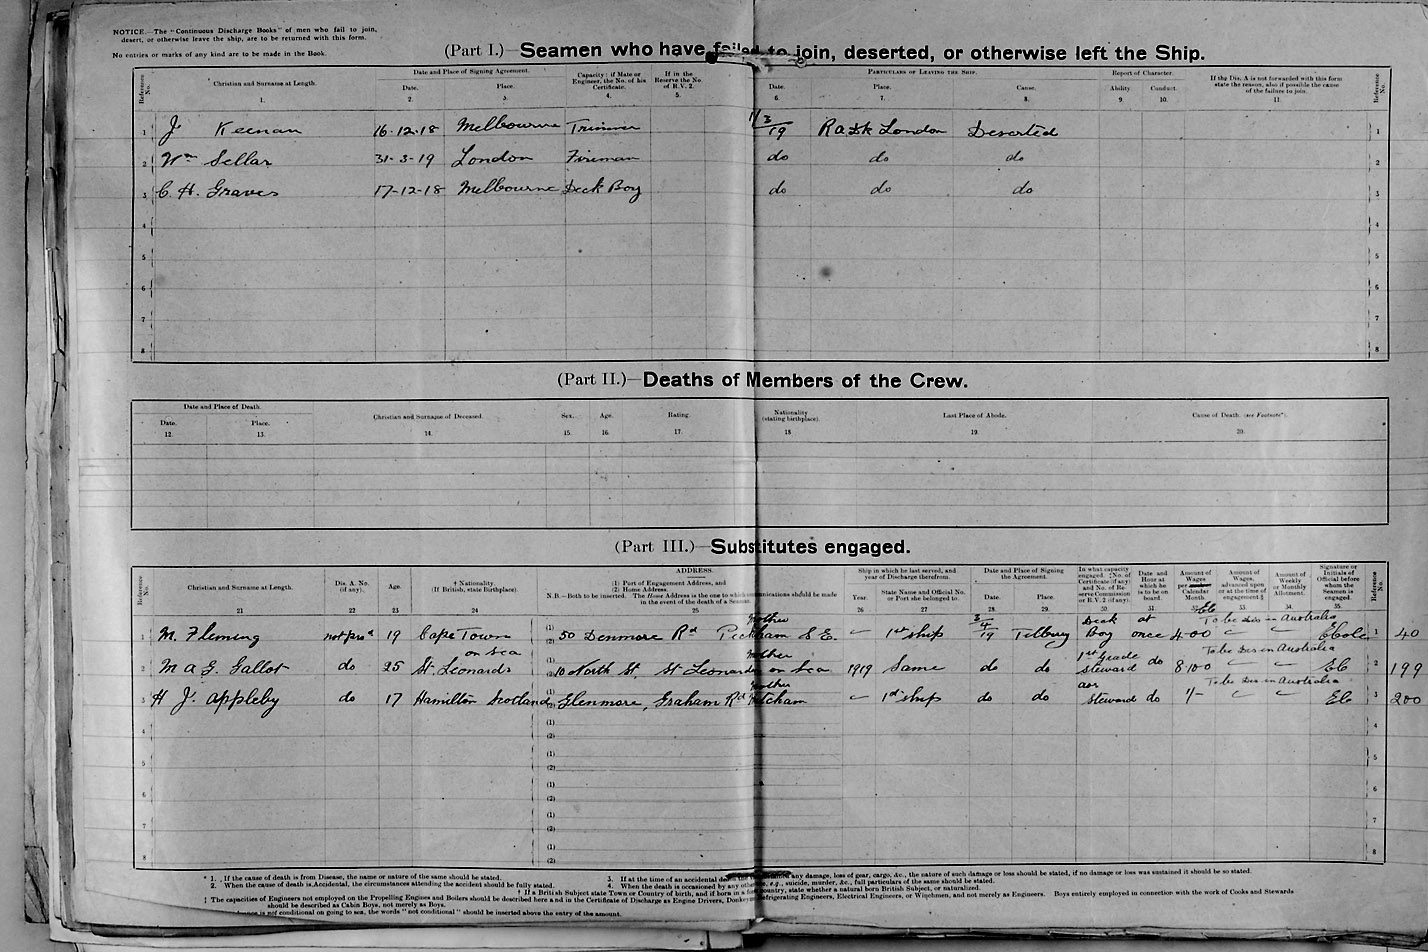 NOTICE.—The "Continuous Discharge Books" of men who fail to join,
desert, or otherwise leave the ship, are to be returned with this form.
No entries or marks of any kind are to be made in the Book.
(Part I.)—Seamen who have failed to join, deserted, or otherwise left the Ship.
Reference No. Christian and Surname at Length. Date and Place of Signing Agreement. Date. Place. Capacity: if Mate or Engineer, the No. of his Certificate. If in the Reserve the No. of R.V. 2. Particulars of Leaving the Ship. Date. Place. Cause. Report of Character. Ability. Conduct. If the Dis. A is not forwarded with this form state the reason, also if possible the cause of the failure to join. Reference No.
1. 2. 3. 4. 5. 6. 7. 8. 9. 10. 11.
1 J Keenan 16-12-18 Melbourne Trimmer 3/19 London Deserted 1
2 Wm Sellar 31-3-19 London Fireman do do do 2
3 C. H. Graves 17-12-18 Melbourne Deck Boy do do do 3
4 4
5 5
6 6
7 7
8 8
(Part II.)—Deaths of Members of the Crew.
Date and Place of Death. Date. Place. Christian and Surname of Deceased. Sex. Age. Rating. Nationality (stating birthplace). Last Place of Abode. Cause of Death. (see Footnote*).
12. 13. 14. 15. 16. 17. 18 19. 20.
(Part III.)—Substitutes engaged.
Reference No. Christian and Surname at Length. Dis. A. No. (if any). Age. † Nationality. (If British, state Birthplace). ADDRESS. (1) Port of Engagement Address, and (2) Home Address. N.B.—Both to be inserted. The Home Address is the one to which communications should be made in the event of the death of a Seaman. Ship in which he last served, and year of Discharge therefrom. Year. State Name and Official No. or Port she belonged to. Date and Place of Signing the Agreement. Date. Place. In what capacity engaged. ‡No. of Certificate (if any) and No. of Reserve Commission or R.V. 2 (if any). Date and Hour at which he is to be on board. Amount of Wages per Calendar Month. Amount of Wages, advanced upon or at the time of engagement.§ Amount of Weekly or Monthly Allotment. Signature or Initials of Official before whom the Seaman is engaged. Reference No.
21 22 23 24 25 26 27 28. 29. 30. 31. 33. 34. 35.
1 M. Fleming not prod 19 Cape Town (1) (2) 50 Denmore Rd Peckham S E. Mother 1st ship 3/4/19 Tilbury Deck Boy at once 4-0-0 To be Dis in Australia 1 40
2 M A G. Gallot do 25 St. Leonards on sea (1) (2) 10 North St, St Leonards on Sea Mother 1919 Same do do 1st Grade Steward do 8.10.0 To be Dis in Australia 2 199
3 H J. Appleby do 17 Hamilton Scotland (1) (2) Glenmore, Graham Rd Mitcham Mother 1st ship do do Steward do 1/- To be Dis in Australia 3 200
4 (1) (2) 4
5 (1) (2) 5
6 (1) (2) 6
7 (1) (2) 7
8 (1) (2) 8
* 1. If the cause of death is from Disease, the name or nature of the same should be stated.
2. When the cause of death is Accidental, the circumstances attending the accident should be fully stated.
3. If at the time of an accidental death any damage, loss of gear, cargo, &c., the nature of such damage or loss should be stated, if no damage or loss was sustained it should be so stated.
4. When the death is occasioned by any other cause, e.g., suicide, murder, &c., full particulars of the same should be stated.
† If a British Subject state Town or Country of birth, and if born in a foreign country, state whether a natural born British Subject, or naturalized.
‡ The capacities of Engineers not employed on the Propelling Engines and Boilers should be described here and in the Certificate of Discharge as Engine Drivers, Donkeymen, Refrigerating Engineers, Electrical Engineers, or Winchmen, and not merely as Engineers. Boys entirely employed in connection with the work of Cooks and Stewards
should be described as Cabin Boys, not merely as Boys.
is not conditional on going to sea, the words "not conditional" should be inserted above the entry of the amount.